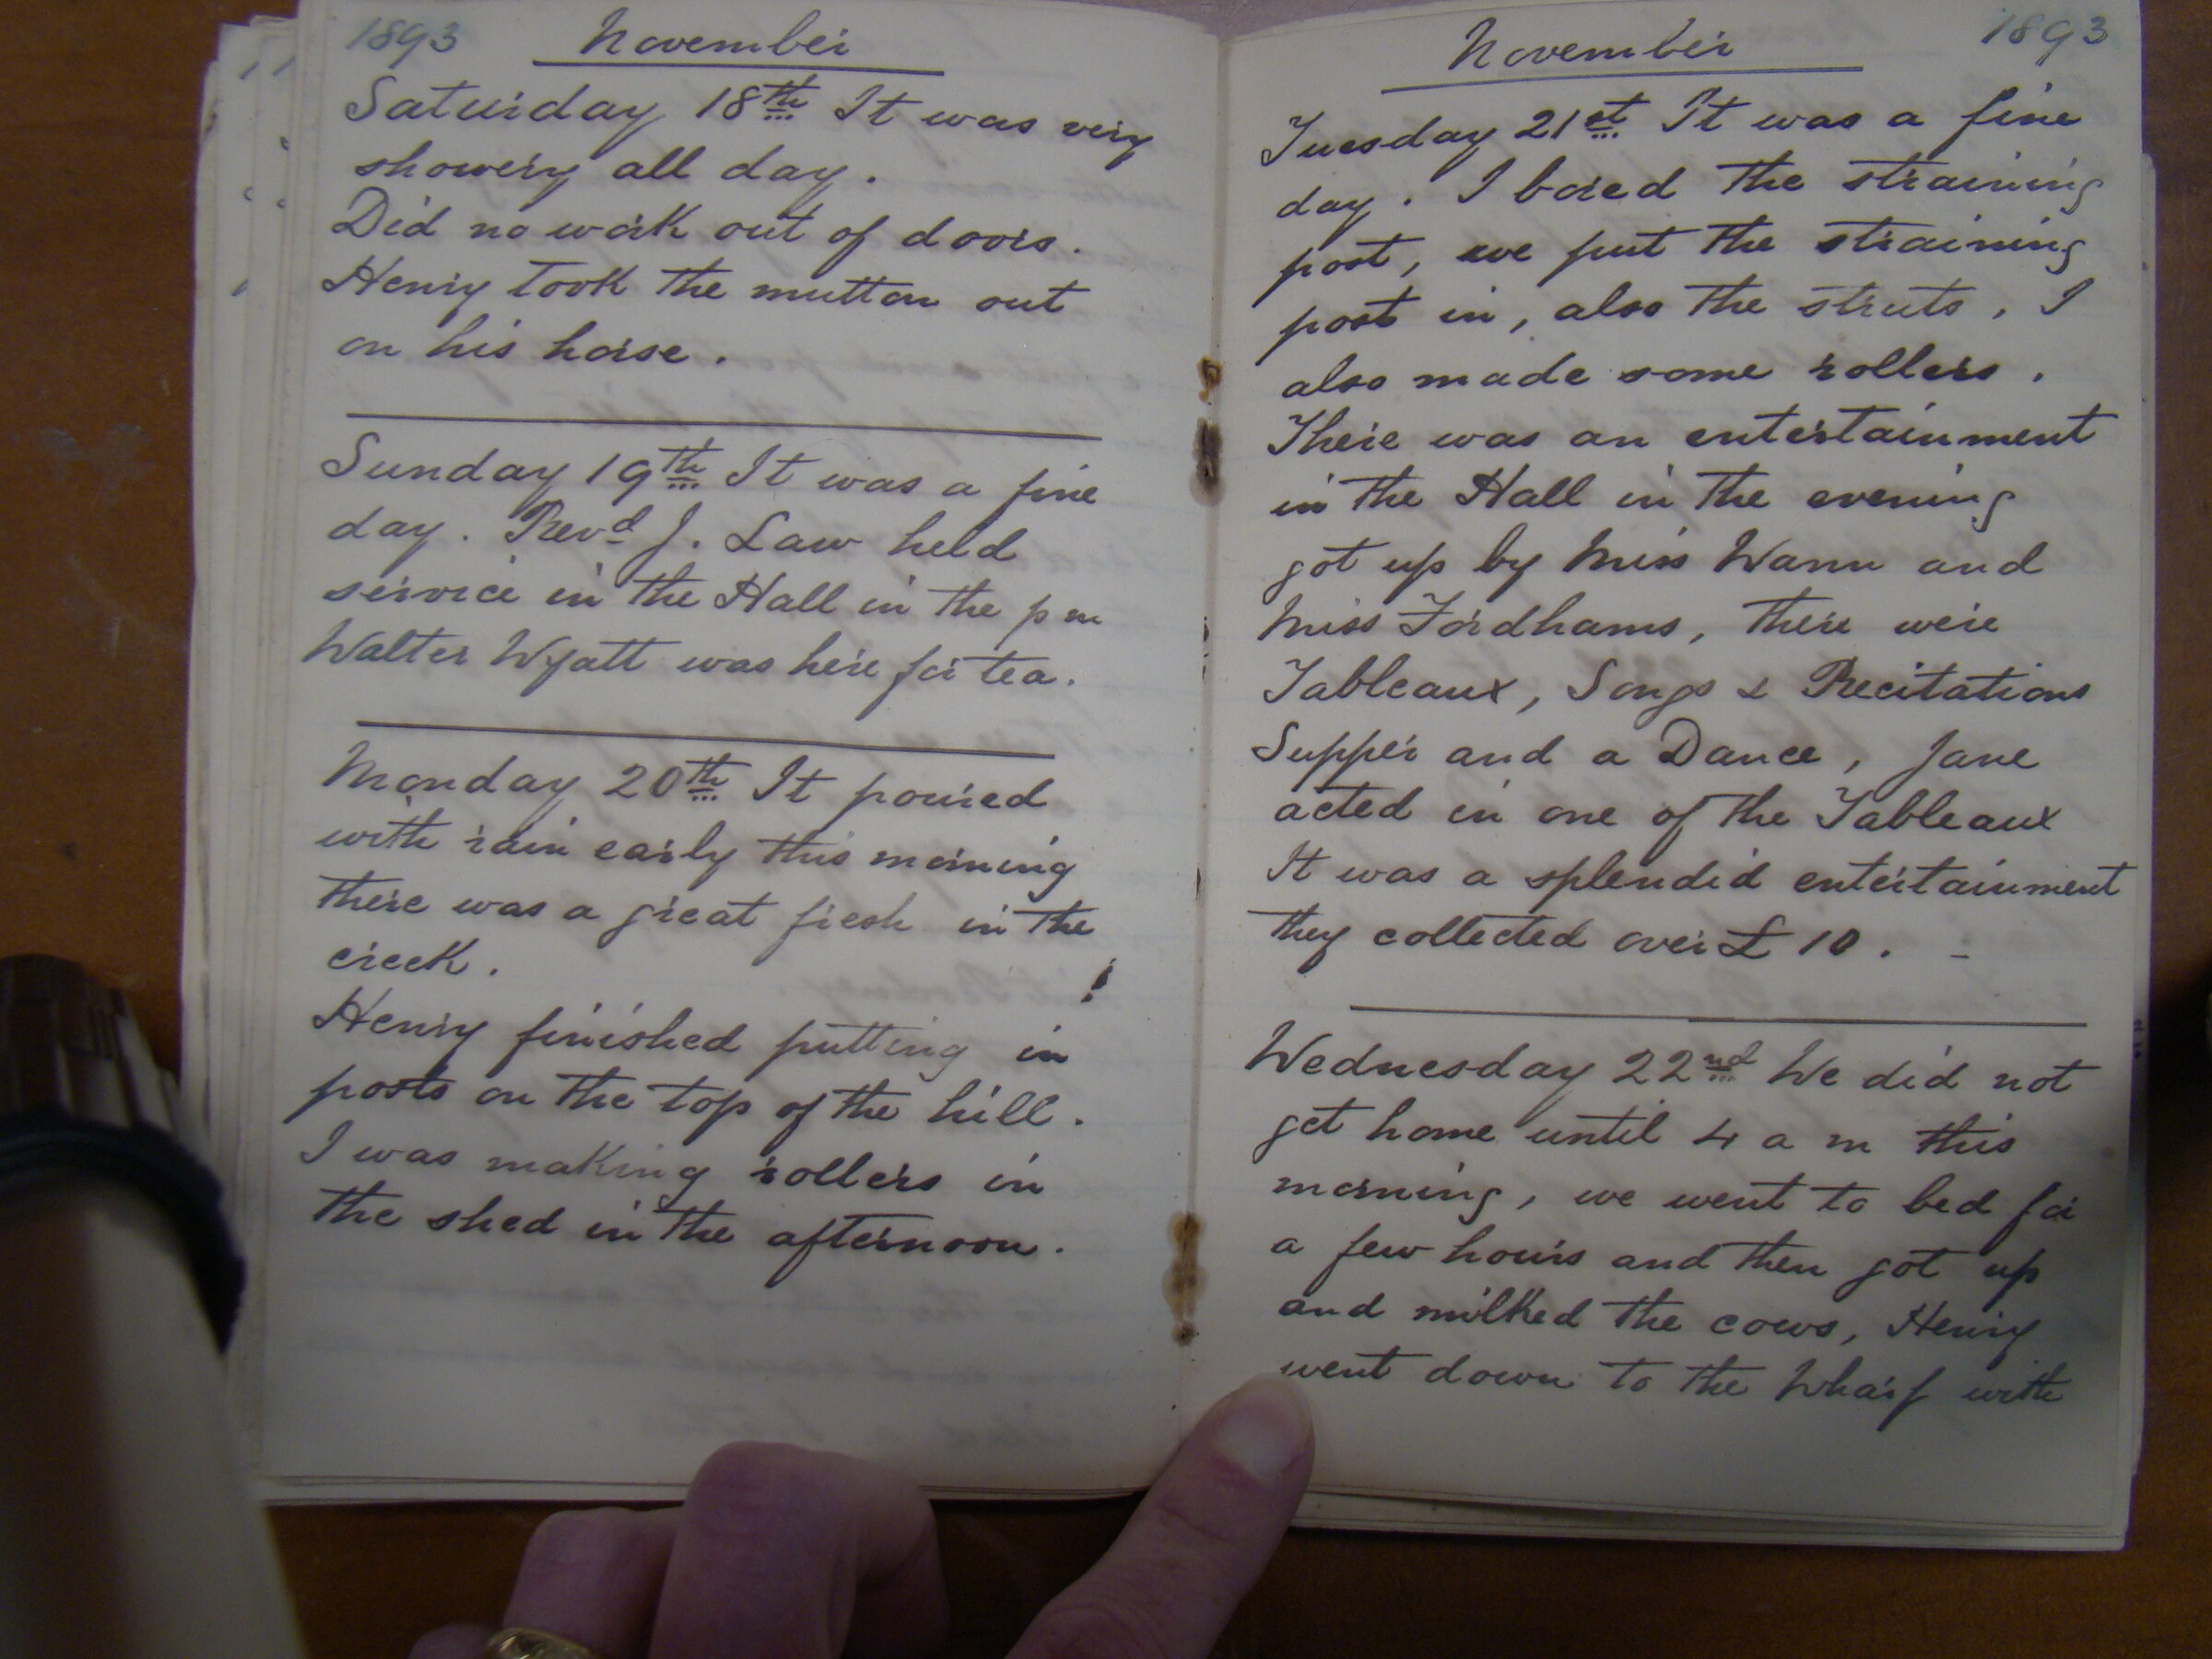 1893 November
Saturday 18th It was very
showery all day.
Did no work out of doors.
Henry took the mutton out
on his horse.
Sunday 19th It was a fine
day. Revd J. Law held
service in the Hall in the p m
Walter Wyatt was here for tea.
Monday 20th It poured
with rain early this morning
there was a great fresh in the
creek.
Henry finished putting in
posts on the top of the hill.
I was making rollers in
the shed in the afternoon.
November 1893
Tuesday 21st It was a fine
day. I bored the straining
post, we put the straining
post in, also the struts, I
also made some rollers.
There was an entertainment
in the Hall in the evening
got up by Miss Wann and
Miss Fordhams, there were
Tableaux, Songs & Recitations
Supper and a Dance, Jane
acted in one of the Tableaux
It was a splendid entertainment
they collected over £10. -
Wednesday 22nd We did not
get home until 4 a m this
morning, we went to bed for
a few hours and then got up
and milked the cows, Henry
went down to the Wharf with